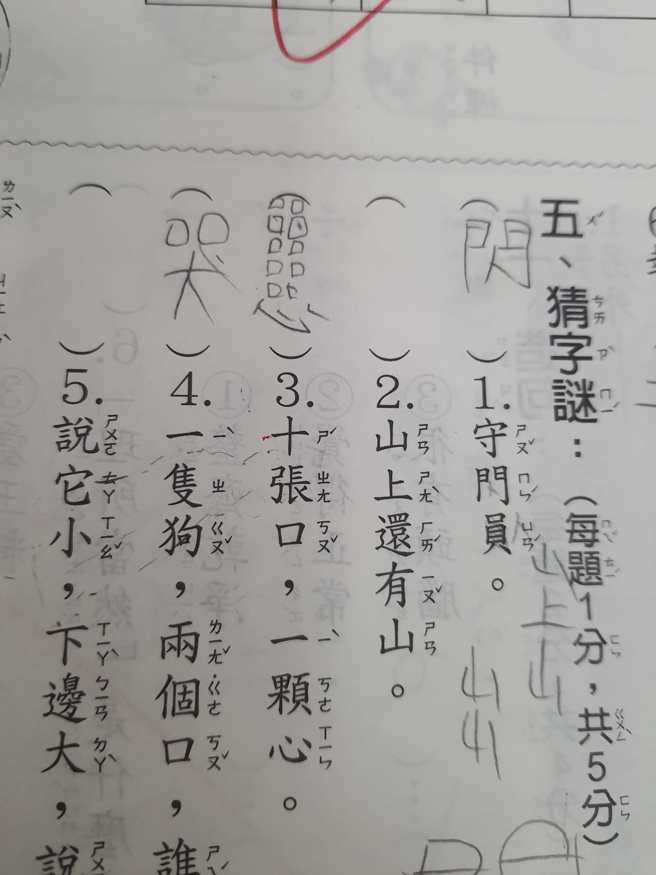 五、猜字謎：（每題1分，共5分）
（閃）1.守門員。
（）2.山上還有山。
山上山
屾
屾
（）3.十張口，一顆心。
（哭）4.一隻狗，兩個口，誰
（）5.說它小，下邊大，說